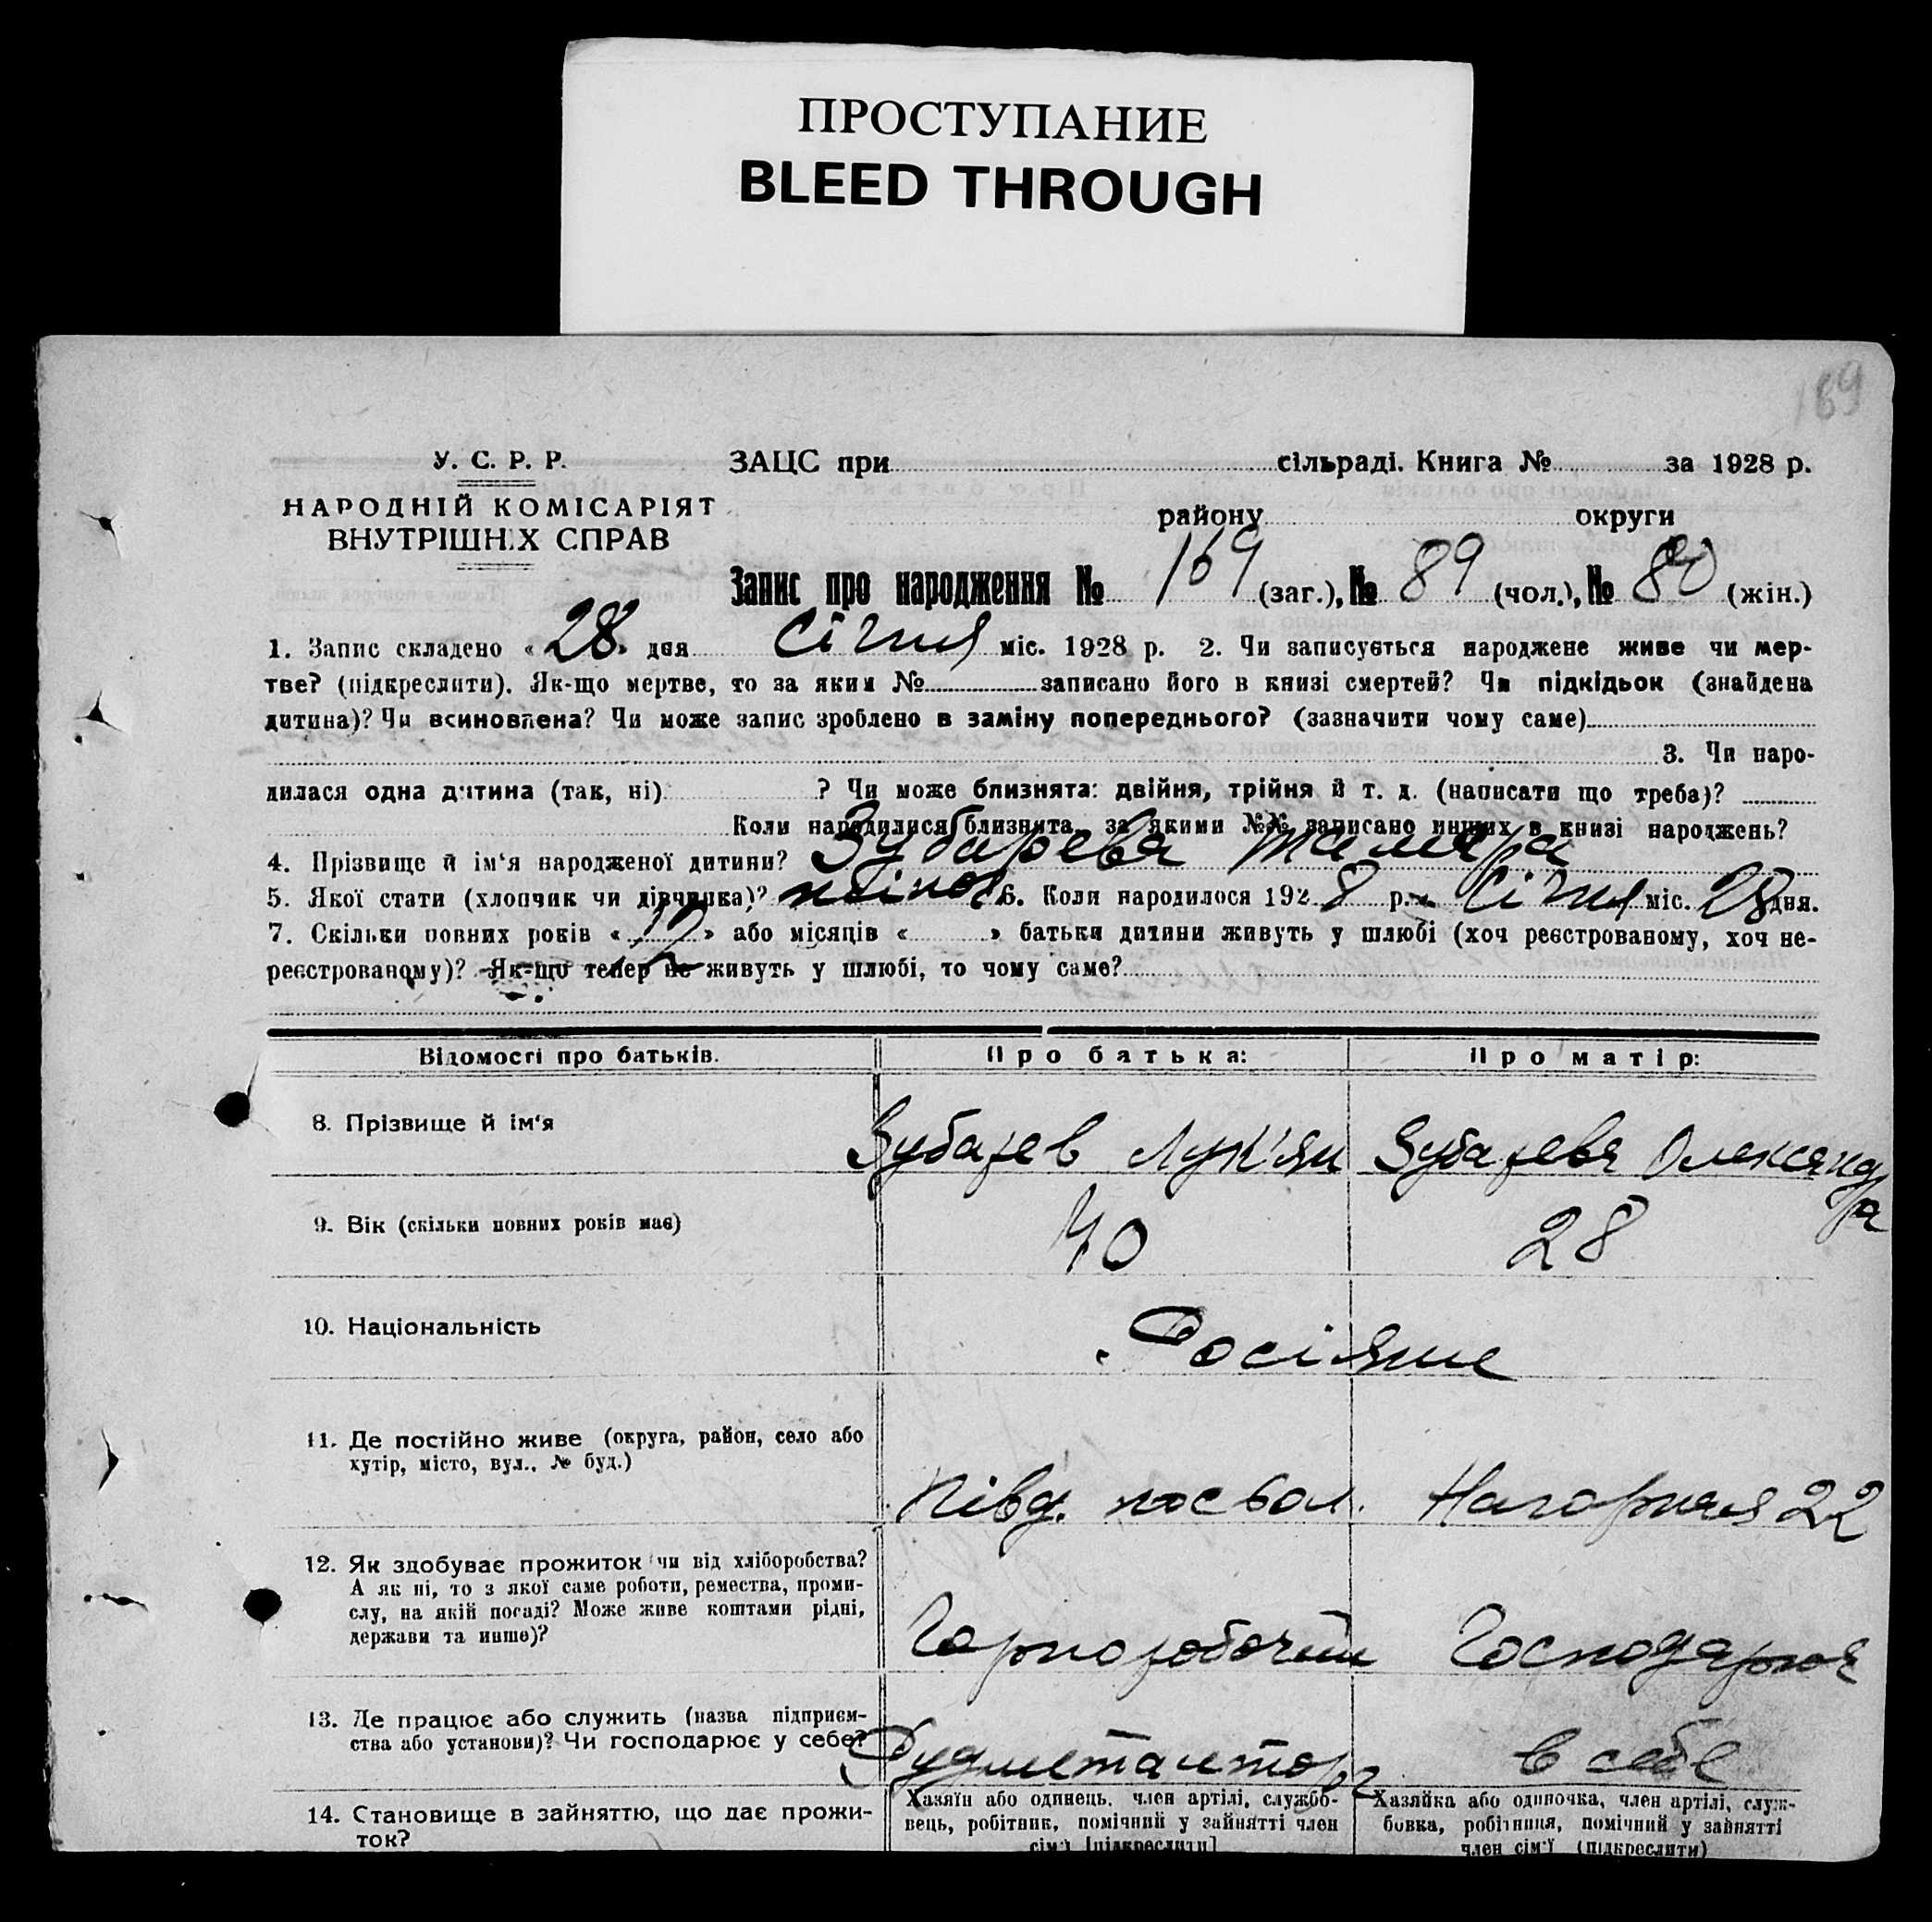 ПРОСТУПАНИЕ
BLEED THROUGH
169
У. С. Р. Р.
НАРОДНІЙ КОМІСАРІЯТ
ВНУТРІШНІХ СПРАВ
ЗАЦС при сільраді. Книга № за 1928 р.
району округи
Запис про народження № 169 (заг.), № 89 (чол.), № 80 (жін.)
1. Запис складено « 28 » дня Січня міс. 1928 р. 2. Чи записується народжене живе чи мер-
тве? (підкреслити). Як-що мертве, то за яким № записано його в книзі смертей? Чи підкідьок (знайдена
дитина)? Чи всиновлена? Чи може запис зроблено в заміну попереднього? (зазначити чому саме)
3. Чи наро-
дилася одна дитина (так, ні) ? Чи може близнята: двійня, трійня й т. д. (написати що треба)?
Коли народилися близнята, за якими №№ записано инших в книзі народжень?
4. Прізвище й ім‘я народженої дитини? Зубарева Тамара
5. Якої стати (хлопчик чи дівчинка)? 6. Коли народилося 192 8 р. Січня міс. 28 дня.
7. Скільки повних років « » або місяців « » батьки дитини живуть у шлюбі (хоч реєстрованому, хоч не-
реєстрованому)? Як-що тепер не живуть у шлюбі, то чому саме?
Відомості про батьків. Про батька: Про матір:
8. Прізвище й ім‘я Зубарев Лук'ян Зубарева Олександра
9. Вік (скільки повних років має) 40 28
10. Національність Росіяне
11. Де постійно живе (округа, район, село або
хутір, місто, вул., № буд.)
Півд. Нагорная 22
12. Як здобуває прожиток чи від хліборобства?
А як ні, то з якої саме роботи, ремества, проми-
слу, на якій посаді? Може живе коштами рідні,
держави та инше)?
Горноробочий Господарня
13. Де працює або служить (назва підприєм-
ства або установи)? Чи господарює у себе?
Рудметалторг в себе
14. Становище в зайняттю, що дає прожи-
ток?
Хазяїн або одинець, член артілі, службо-
вець, робітник, помічний у зайнятті член
сім'ї [підкреслити]
Хазяйка або одиночка, член артілі, служ-
бовка, робітниця, помічний у зайнятті
член сім'ї (підкреслити)